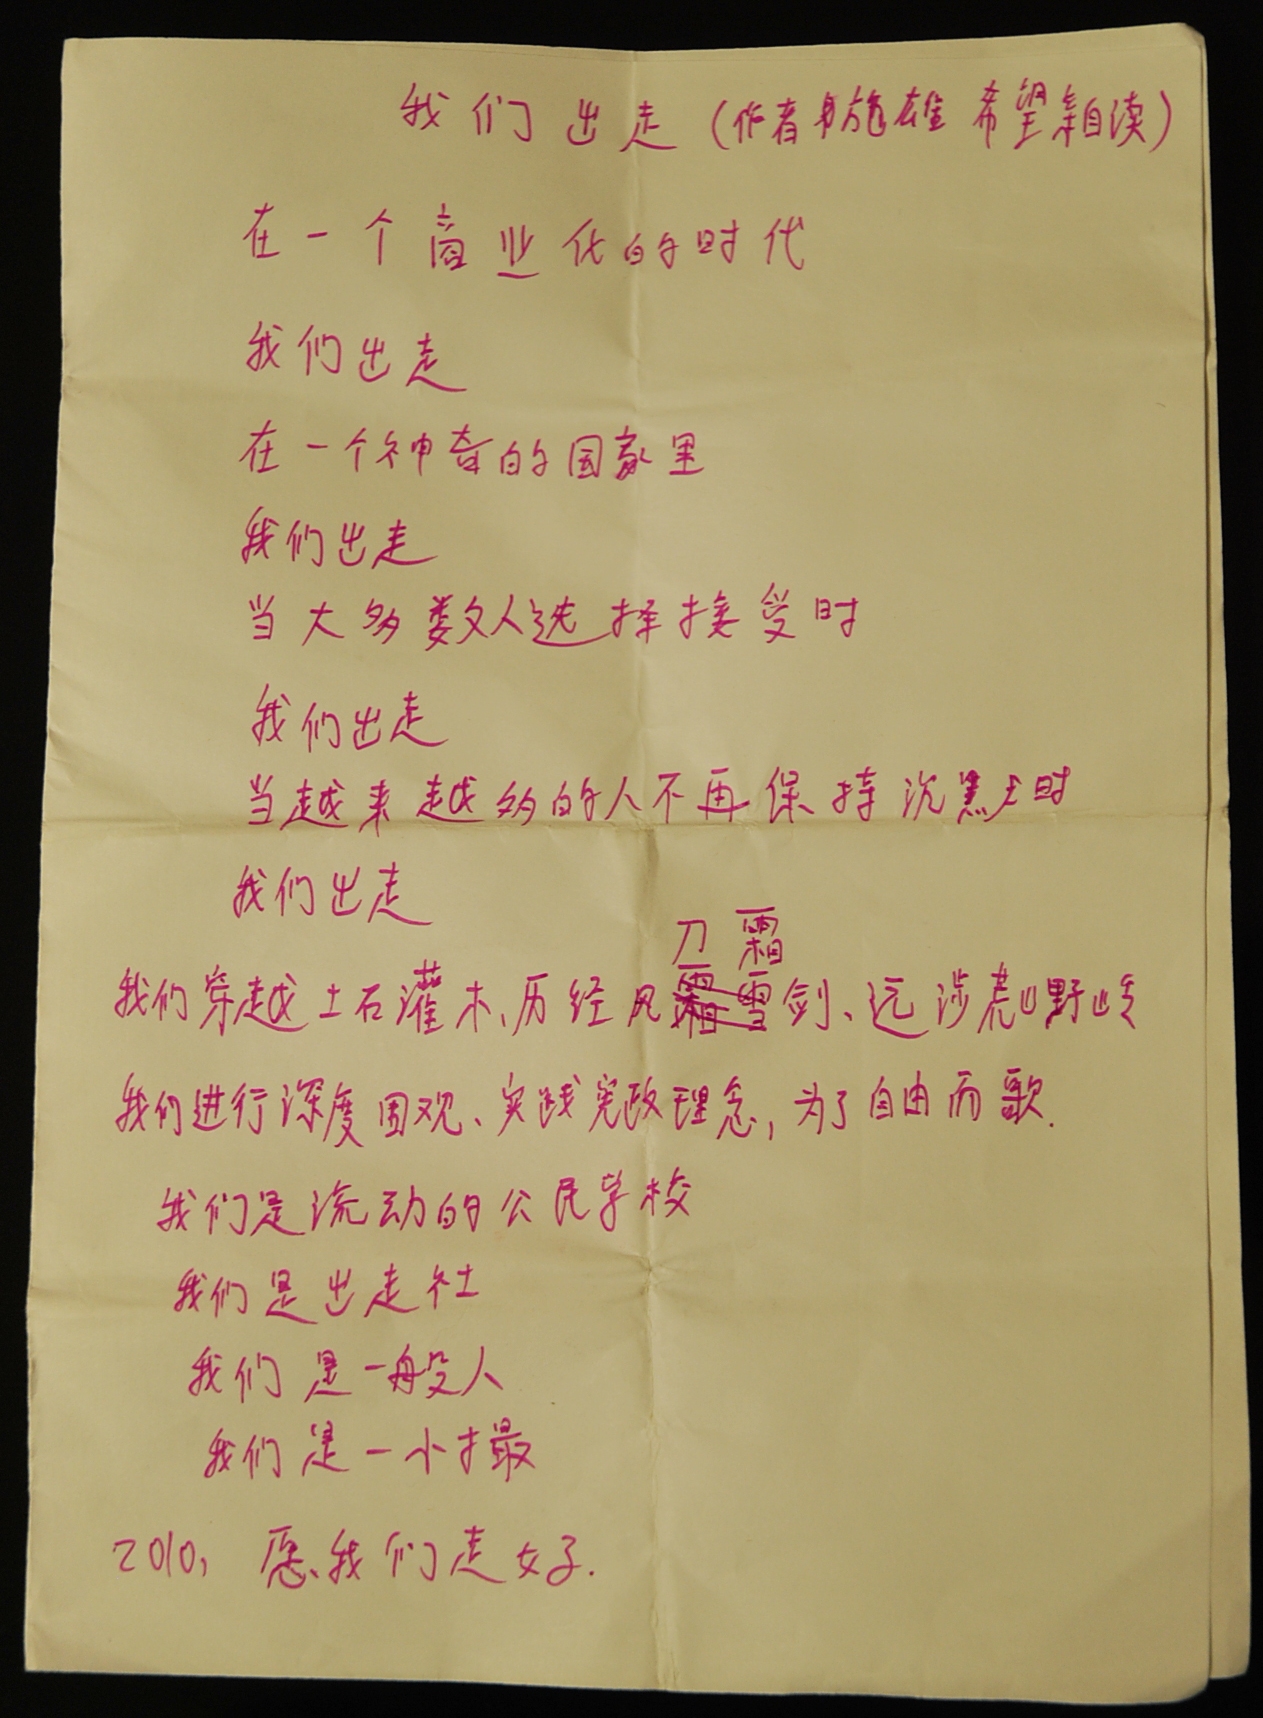 我们出走（作者雄 希望亲自读）
在一个商业化的时代
我们出走
在一个神奇的国家里
我们出走
当大多数人选择接受时
我们出走
当越来越多的人不再保持沉默时
我们出走
我们穿越土石灌木、历经风刀霜剑、远涉荒山野岭
我们进行深度围观、实践宪政理念，为了自由而歌.
我们是流动的公民学校
我们是出走社
我们是一般人
我们是一小撮
2010，愿我们走好.